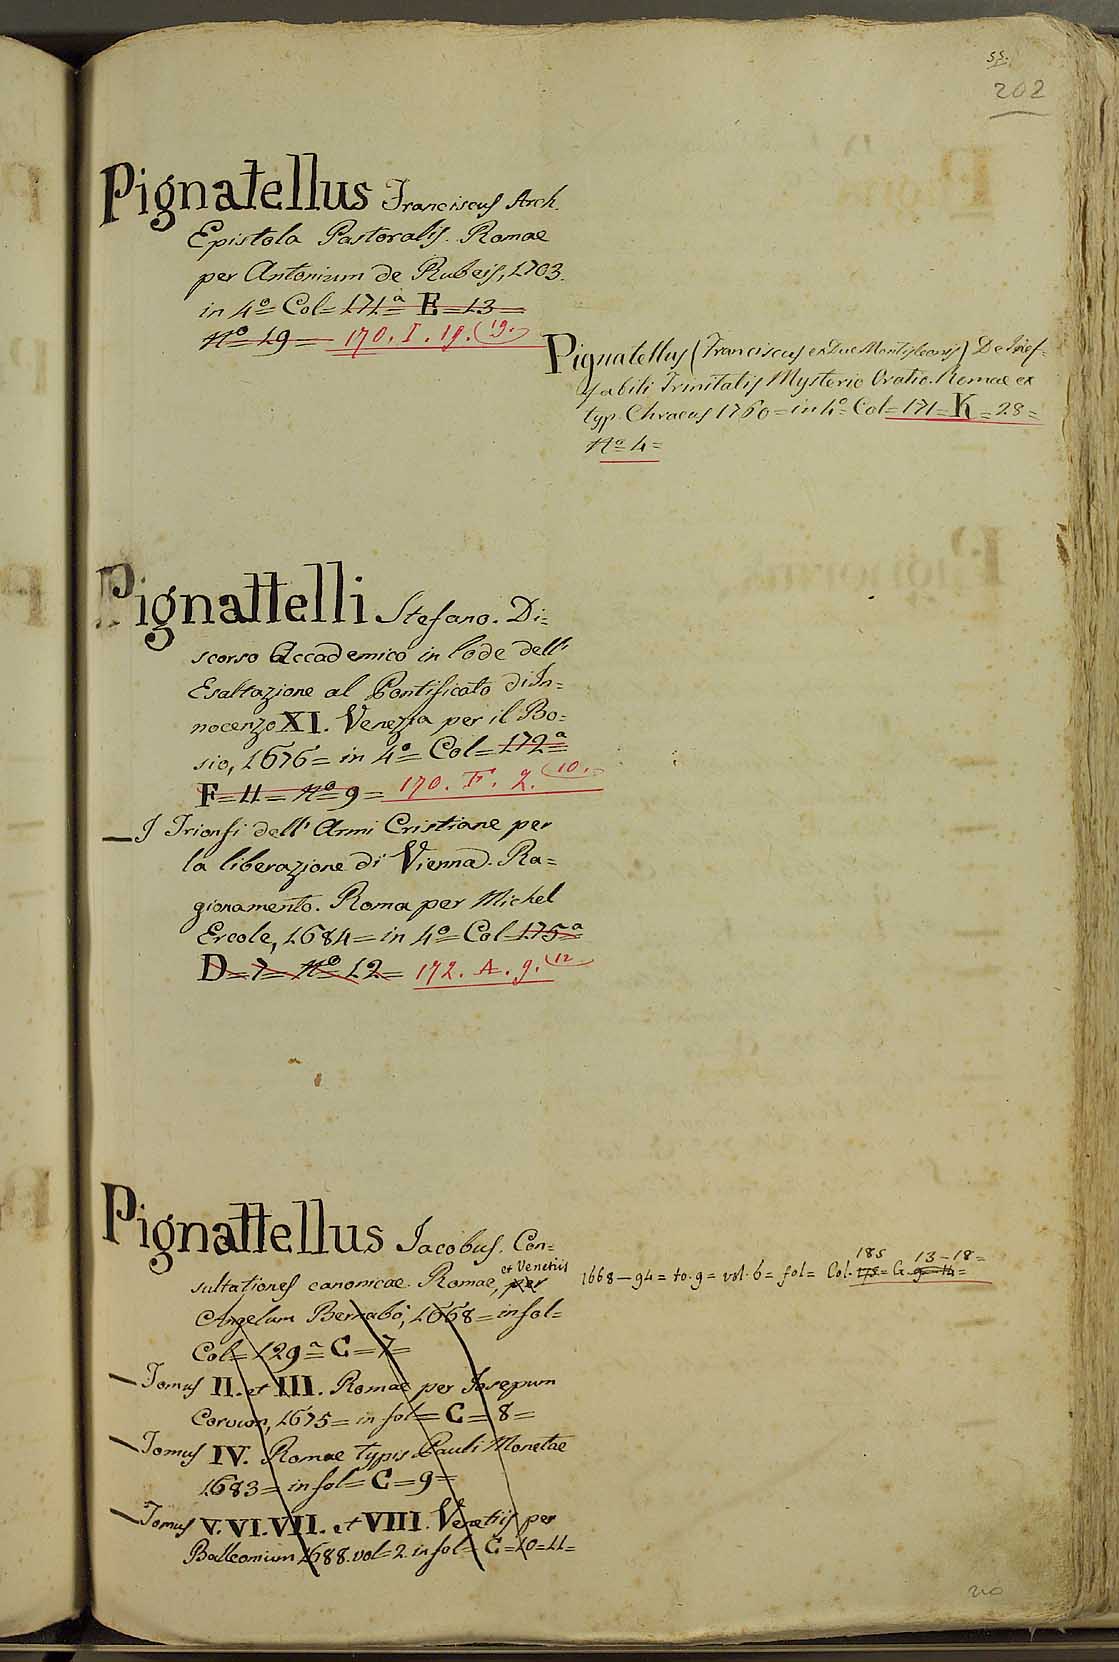 55.
202
Pignatellus Franciscus Arch.
Epistola Pastoralis. Romae
per Antonium de Rubeis, 1703.
in 4º= Col= 171ª E= 13=
Nº= 19= 170. I. 19. (19.)
Pignatellus (Franciscus ex Duc Montisleonis) De Inef=
fabili Trinitatis Mysterio Oratio. Romae ex
typ. Chracas 1760= in 4º= Col= 171= K= 28=
Nº= 4=
Pignattelli Stefano. Di=
scorso Accademico in lode dell'
Esaltazione al Pontificato di In=
nocenzo XI. Venezia per il Bo=
sio, 1676= in 4º= Col= 172ª=
F= 11= Nº= 9= 170. F. 2. (10.
— I Trionfi dell'Armi Cristiane per
la liberazione di Vienna. Ra=
gionamento. Roma per Michel
Ercole, 1684= in 4º= Col= 175ª=
D= 7= Nº= 12= 172. A. 9. (12
Pignattellus Iacobus. Con=
sultationes canonicae. Romae, per et Venetiis 1668—94= to. 9= vol. 6= fol= Col. 175= 185 C. 9=14= 13-18=
Angelum Bernabò, 1668= in fol=
Col= 129ª= C= 7=
— Tomus II. et III. Romae per Iosepum
Corvum, 1675= in fol= C= 8=
— Tomus IV. Romae typis Pauli Monetae
1683= in fol= C= 9=
— Tomus V. VI. VII. et VIII. Venetiis per
Balleonium 1688. vol= 2. in fol= C= 10= 11=
210